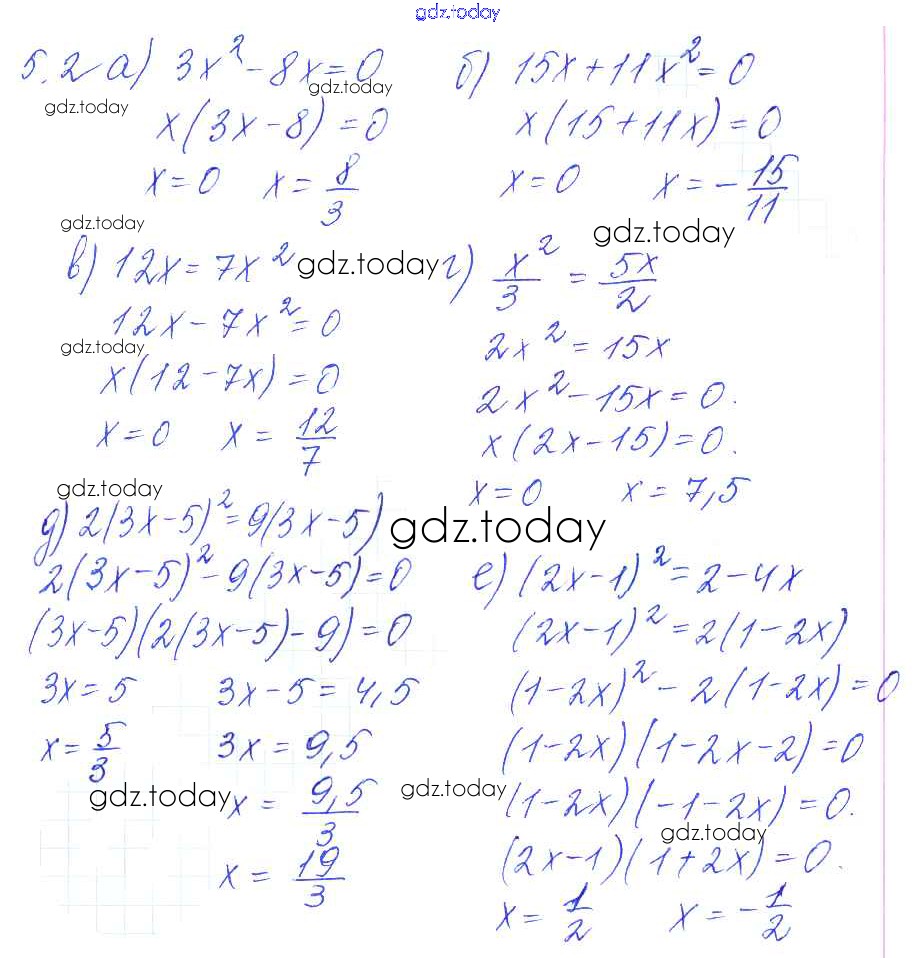 gdz.today
5.2 а) 3x² - 8x = 0
gdz.today
gdz.today
x(3x - 8) = 0
x = 0 x = 8/3
б) 15x + 11x² = 0
x(15 + 11x) = 0
x = 0 x = -15/11
gdz.today
gdz.today
в) 12x = 7x²
gdz.today
12x - 7x² = 0
gdz.today
x(12 - 7x) = 0
x = 0 x = 12/7
г) x²/3 = 5x/2
2x² = 15x
2x² - 15x = 0.
x(2x - 15) = 0.
x = 0 x = 7,5
gdz.today
д) 2(3x - 5)² = 9(3x - 5)
gdz.today
2(3x - 5)² - 9(3x - 5) = 0
(3x - 5)(2(3x - 5) - 9) = 0
3x = 5 3x - 5 = 4,5
x = 5/3 3x = 9,5
gdz.today
x = 9,5/3
x = 19/3
е) (2x - 1)² = 2 - 4x
(2x - 1)² = 2(1 - 2x)
(1 - 2x)² - 2(1 - 2x) = 0
(1 - 2x)(1 - 2x - 2) = 0
gdz.today
(1 - 2x)(-1 - 2x) = 0.
gdz.today
(2x - 1)(1 + 2x) = 0.
x = 1/2 x = -1/2